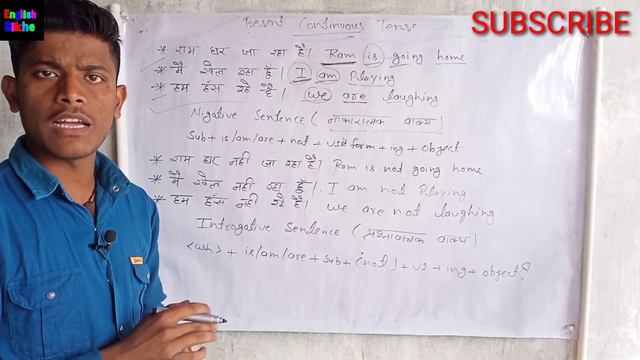 English
Sikhe
SUBSCRIBE
Present Continuous Tense
* राम घर जा रहा है। Ram is going home
* मैं खेल रहा हूँ। I am Playing
* हम हंस रहे हैं। we are laughing
Nigative Sentence (नाकारात्मक वाक्य)
Sub + is/am/are + not + v1st form + ing + object.
* राम घर नही जा रहा है। Ram is not going home.
* मैं खेल नही रहा हूँ। I am not Playing.
* हम हंस नही रहे हैं। we are not laughing
Introgative Sentence (प्रश्नवाचक वाक्य)
<Wh> + is/am/are + Sub + (not) + v1 + ing + object?